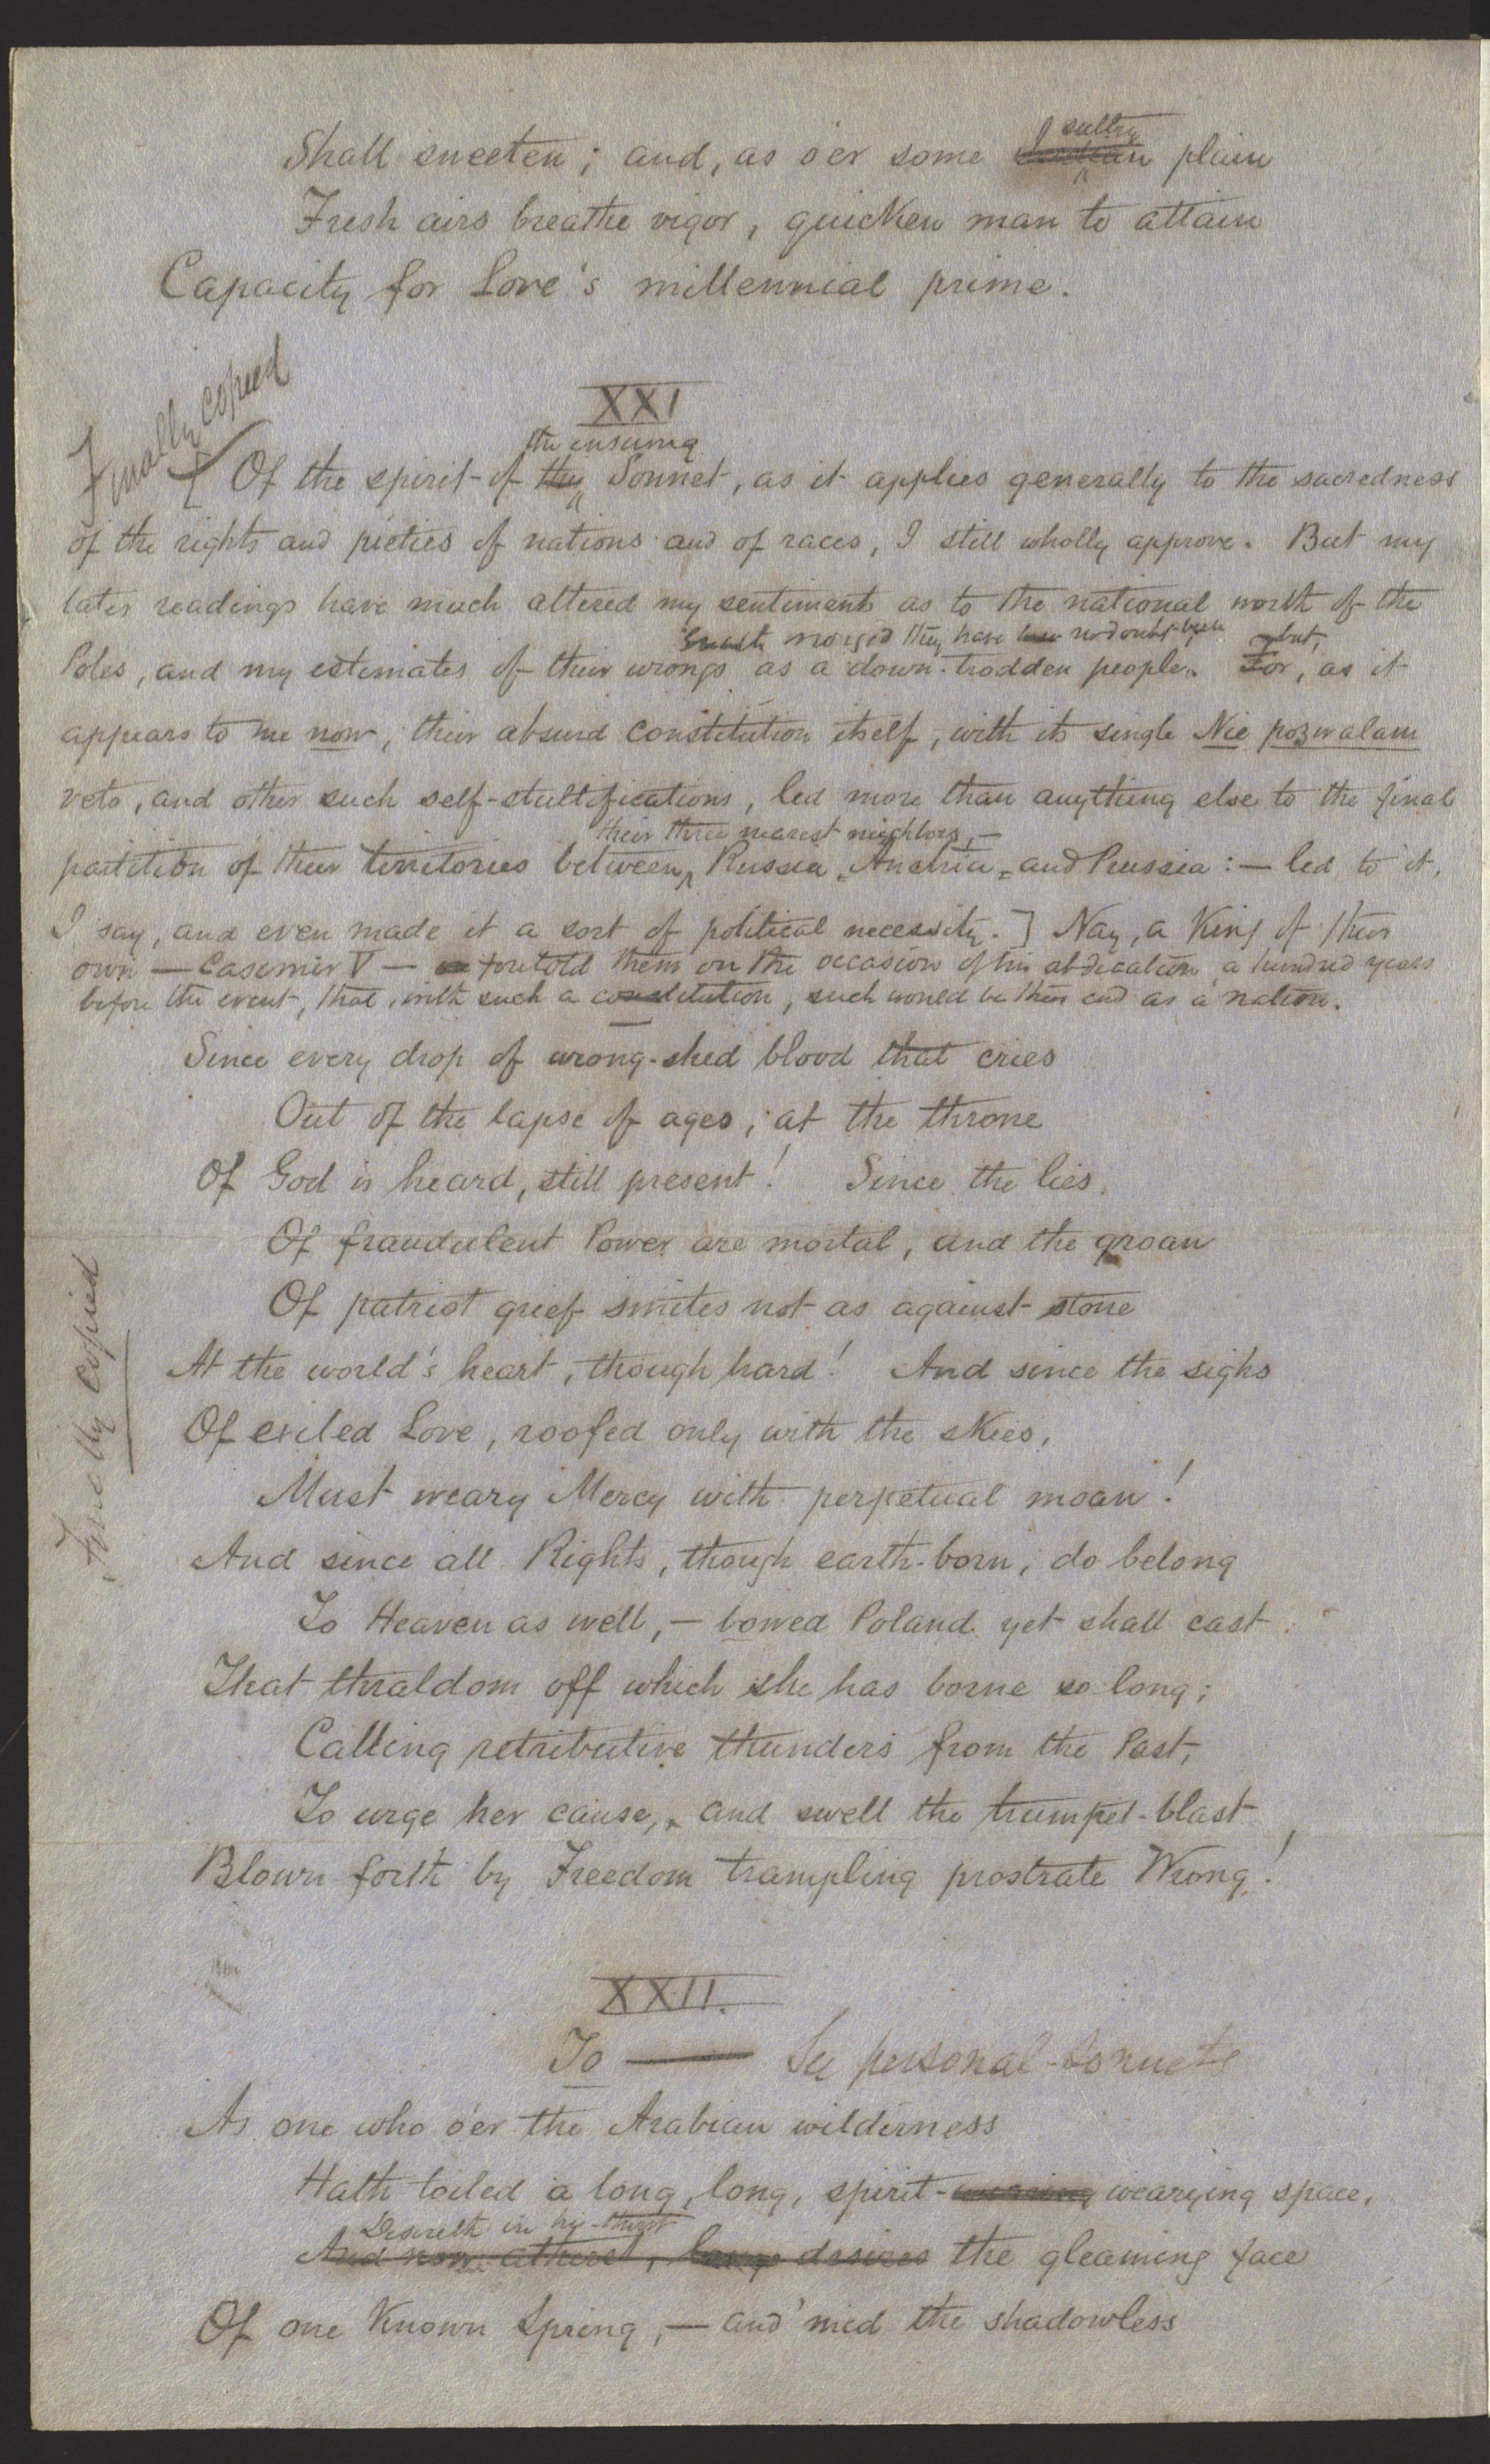 sultry
Shall sweeten; and, as o'er some plain
Fresh airs breathe vigor, quicken man to attain
Capacity for Love's millennial prime.
Finally copied
XXI
the ensuing
[ Of the spirit of this Sonnet, as it applies generally to the sacredness
of the rights and pieties of nations and of races, I still wholly approve. But my
later readings have much altered my sentiments as to the national worth of the
wronged they have no doubt been but,
Poles, and my estimates of their wrongs as a down-trodden people. For, as it
appears to me now, their absurd constitution itself, with its single Nie pozwalam
veto, and other such self-stultifications, led more than anything else to the final
their three nearest neighbors, —
partition of their territories between Russia, Austria, and Prussia: — led to it,
I say, and even made it a sort of political necessity. ] Nay, a King of their
own — Casimir V — foretold them on the occasion of his abdication a hundred years
before the event, that, with such a constitution, such would be their end as a nation.
Since every drop of wrong-shed blood that cries
Out of the lapse of ages, at the throne
Of God is heard, still present! Since the lies
Of fraudulent Power are mortal, and the groan
Of patriot grief smites not as against stone
At the world's heart, though hard! And since the sighs
Of exiled Love, roofed only with the skies,
Must weary Mercy with perpetual moan!
And since all Rights, though earth-born, do belong
To Heaven as well, — bowed Poland yet shall cast
That thraldom off which she has borne so long;
Calling retributive thunders from the Past,
To urge her cause, and swell the trumpet-blast
Blown forth by Freedom trampling prostrate Wrong!
Finally Copied
XXII.
To —— See personal-sonnets
As one who o'er the Arabian wilderness
Hath toiled a long, long, spirit-wearying space,
Desireth in his thirst
And now athirst, desires the gleaming face
Of one Known Spring, — and 'mid the shadowless